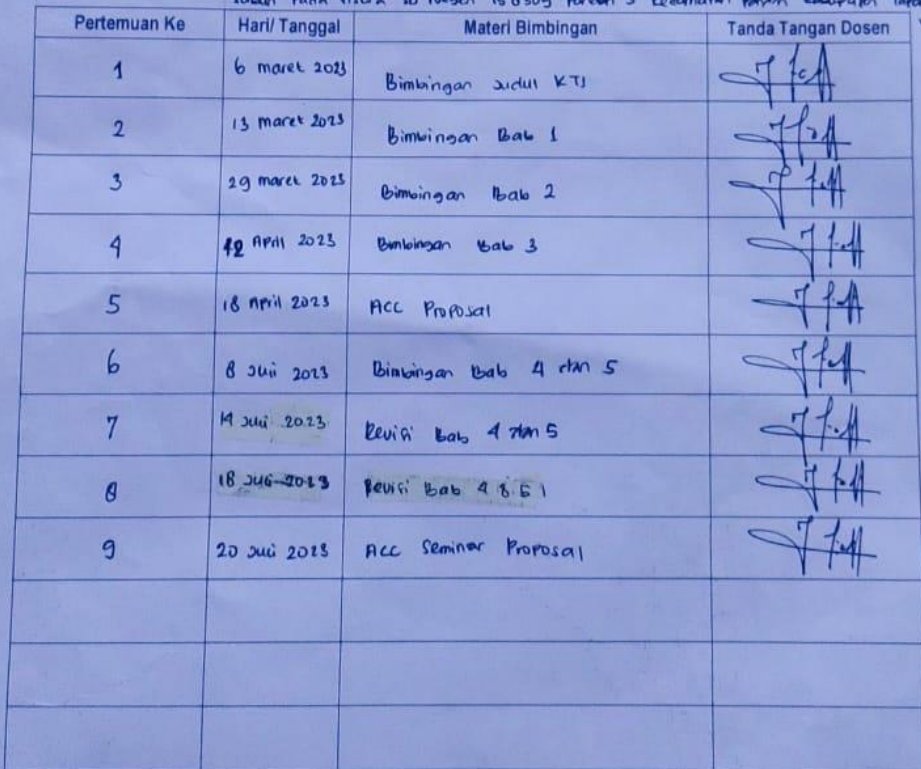 Pertemuan Ke Hari/ Tanggal Materi Bimbingan Tanda Tangan Dosen
1 6 maret 2023 Bimbingan Judul KTI
2 13 maret 2023 Bimbingan Bab 1
3 29 maret 2023 Bimbingan Bab 2
4 12 April 2023 Bimbingan Bab 3
5 18 April 2023 ACC Proposal
6 8 Juli 2023 Bimbingan Bab 4 dan 5
7 14 Juli 2023 Revisi Bab 4 dan 5
8 18 2023 Revisi Bab 4
9 20 Juli 2023 ACC Seminar Proposal